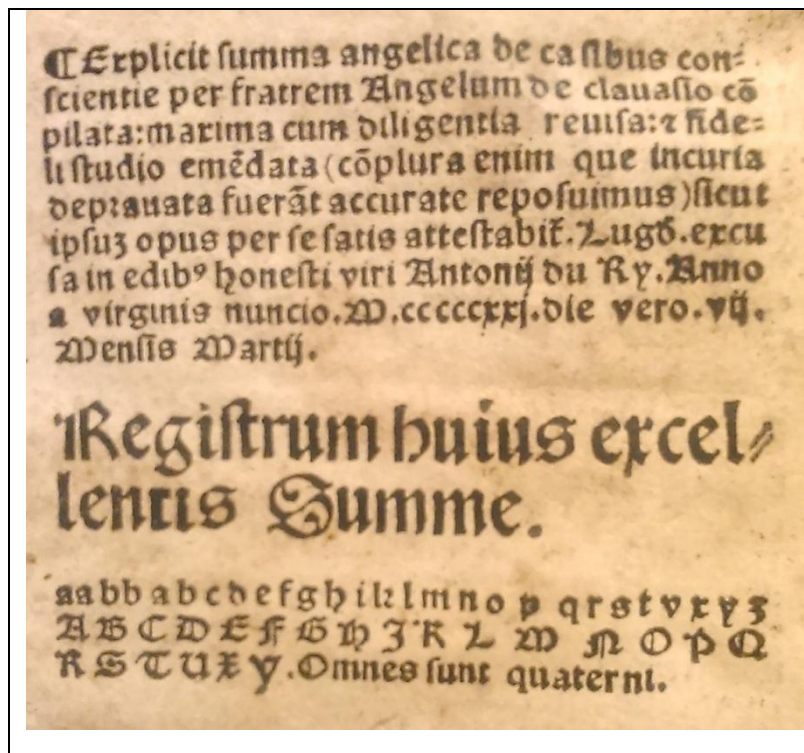 ¶Explicit ſumma angelica de caſibus con⸗
ſcientie per fratrem Angelum de clauaſio cō
pilata:maxima cum diligentia reuiſa:⁊ fide⸗
li ſtudio emēdata (cōplura enim que incuria
deprauata fuerāt accurate repoſuimus)ſicut
ipſuꝫ opus per ſe ſatis atteſtabit̃.Lugd̄.excu
ſa in edibꝰ honeſti viri Antonij du Ry.Anno
a virginis nuncio.M.cccccxxj.die vero.vij.
Menſis Martij.
Regiſtrum huius excel⸗
lentis Summe.
aabb a b c d e f g h i k l m n o p q r s t v x y ʒ
A B C D E F G H J K L M N O P Q
R S T U X Y.Omnes ſunt quaterni.